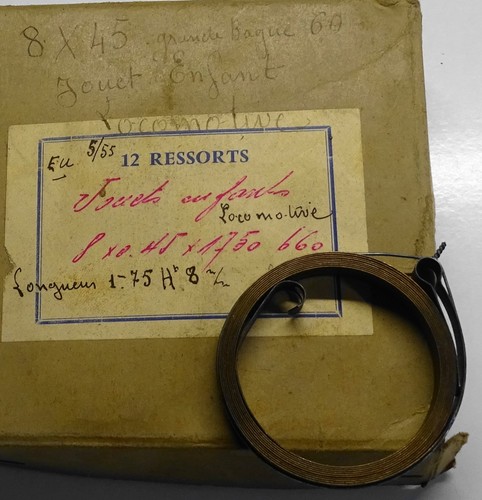 8 X 45 grande bague 60
Jouet Enfant
Locomotive
EU 5/55
12 RESSORTS
Jouets enfants
Locomotive
8 x 0.45 x 1750 660
Longueur 1.75 Hr 8 m/m